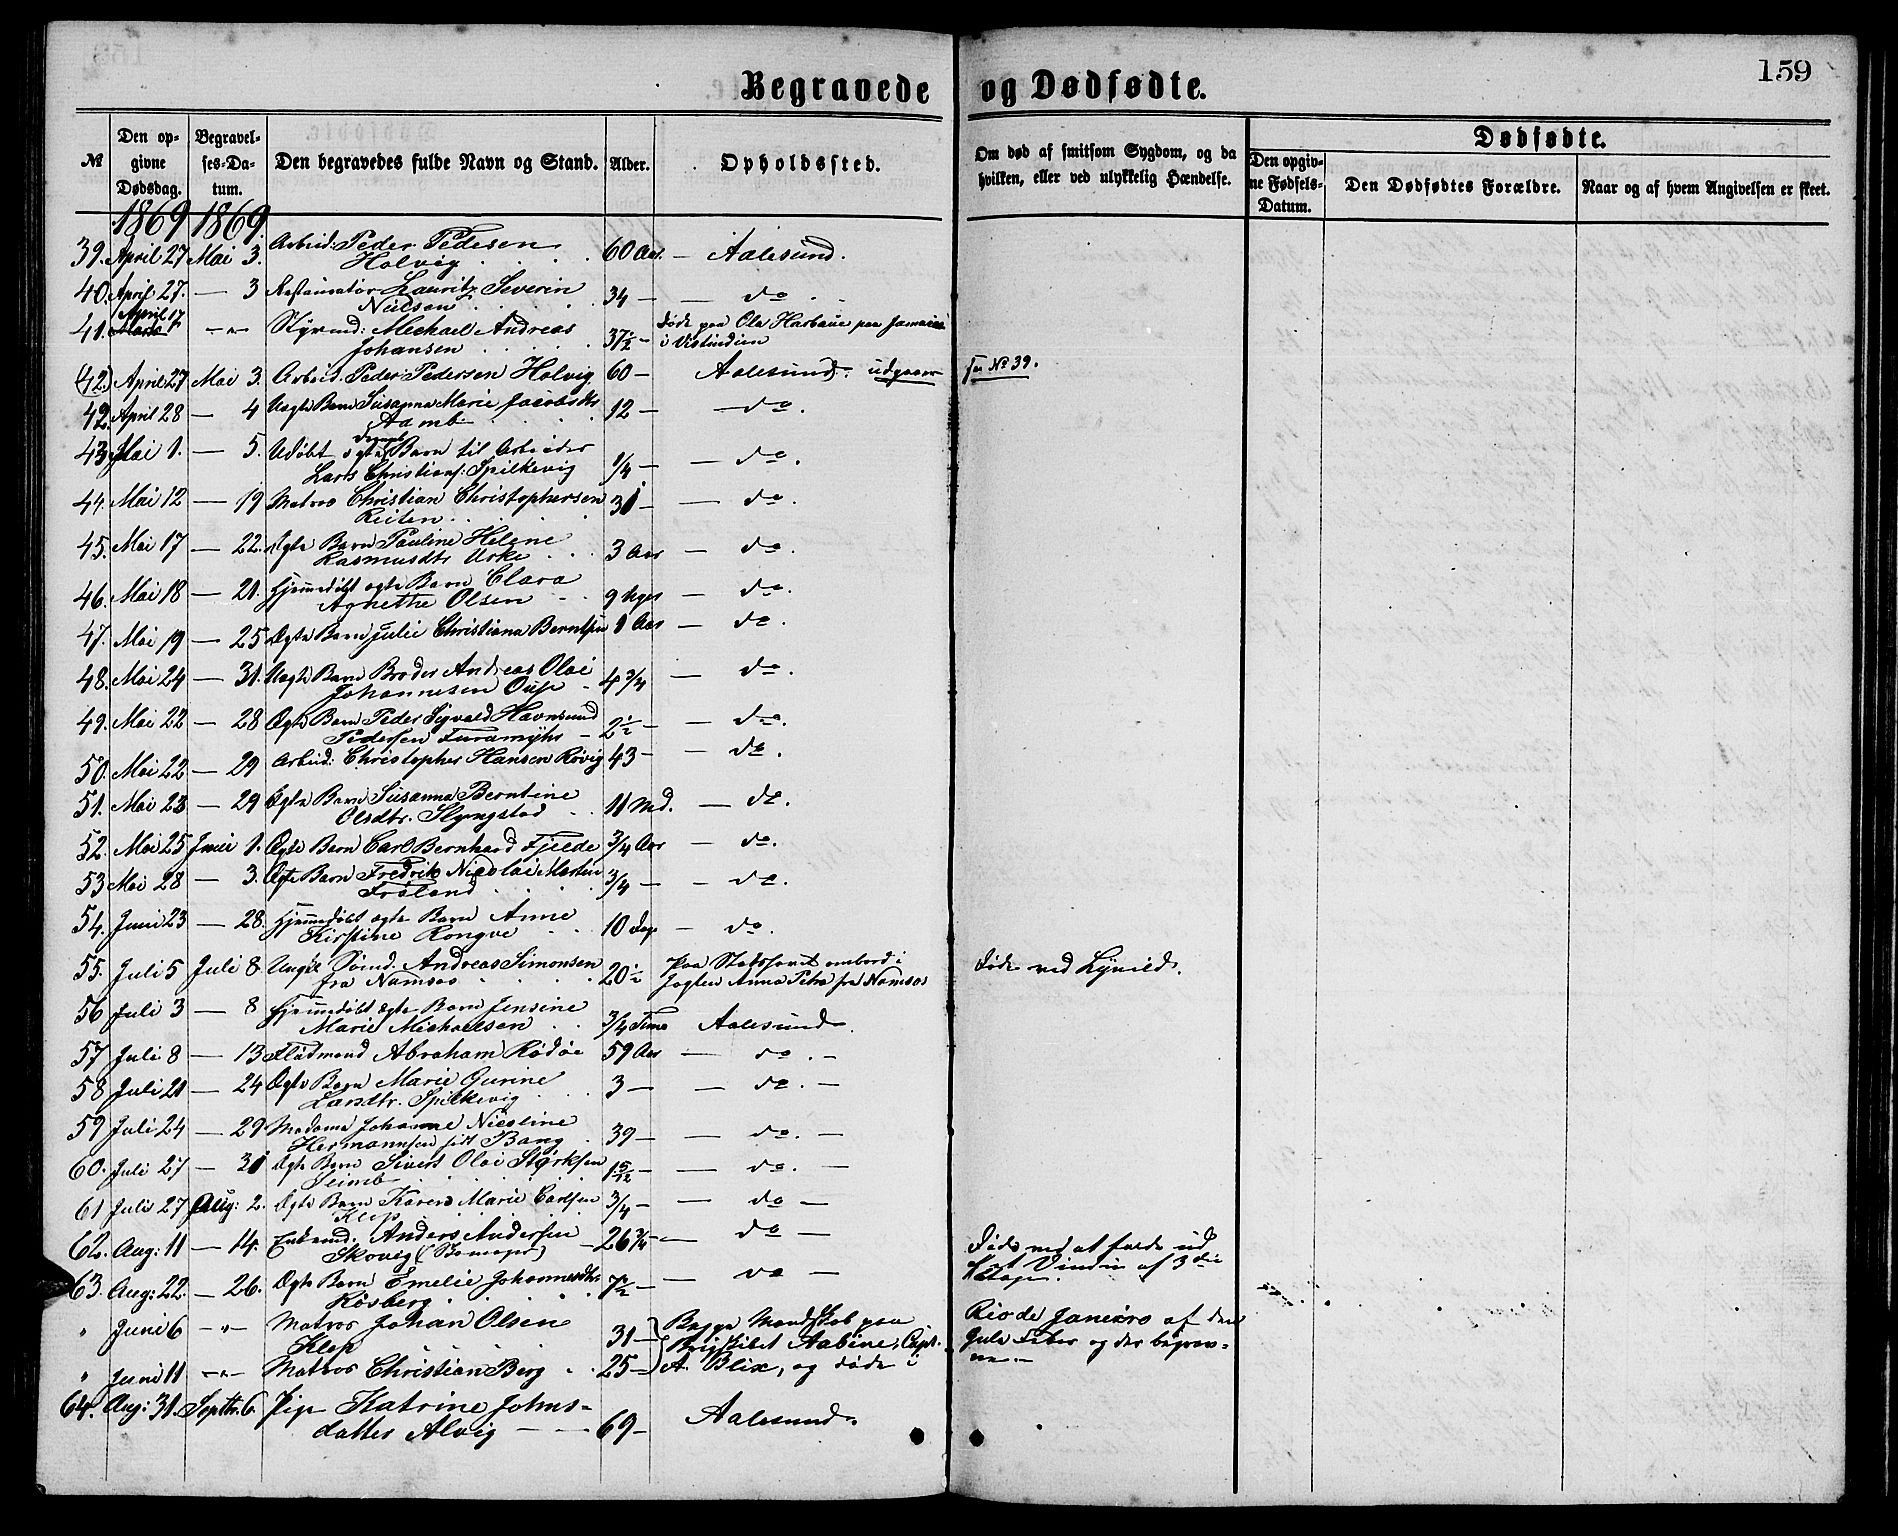 159
Begravede og Dødfødte.
№
Den opgivne Dødsdag.
Begravelses-Datum.
Den begravedes fulde Navn og Stand.
Alder.
Opholdssted.
Om død af smitsom Sygdom, og da hvilken, eller ved ulykkelig Hændelse.
Dødfødte.
Den opgivne Fødsels-Datum.
Den Dødfødtes Forældre.
Naar og af hvem Angivelsen er skeet.
1869 1869.
39. April 27 Mai 3. Arbeid: Peder Pedersen 60 Aar. — Aalesund.
Holvig
40. April 27. — 3 Restauratør Lauritz Severin 34 — — do
Nielsen
41. April 17 — " — Styrmd: Michael Andreas 37½ — døde paa Ole Harbaue paa Jamaica
Johansen i Vestindien
(42) April 27 Mai 3. Arbeid. Peder Pedersen Holvig 60 — Aalesund. udgaar se No 39.
42. April 28 — 4 Uægte Barn Susanna Marie Jacobsdtr 12 — — do.
Aamb
43. Mai 1. — 5. Udøbt ægte Barn til Arbeider
Lars Christians: Spilkevig ¼ — — do.
44. Mai 12 — 19 Matros Christian Christophersen 31 — — do.
Reiten
45. Mai 17 — 22. Ægte Barn Pauline Helene
Rasmusdtr Urke 3 Aar — do.
46. Mai 18 — 21. Hjemmedøbt ægte Barn Clara
Agnethe Olsen 9 Uger — do.
47. Mai 19 — 25 Ægte Barn Julie Christiana Berntsen 1 Aar — do.
48. Mai 24 — 31. Uægte Barn Broder Andreas Olai
Johannesen 4¾ — do.
49. Mai 22 — 28 Ægte Barn Peder Sigvald Havnsund
Pedersen Furamyhr 2½ — — do.
50. Mai 22 — 29 Arbeid: Christopher Hansen Røvig 43 — — do.
51. Mai 23 — 29 Ægte Barn Susanna Berntine
Olsdtr. Slyngstad 11 Md. — do.
52. Mai 25 Juni 1. Ægte Barn Carl Bernhard Fjelde ¾ Aar — do.
53 Mai 28 — 3. Ægte Barn Fredrik Nicolai Martin
Frøland ¾ — — do.
54. Juni 23 — 28. Hjemmedøbt ægte Barn Anne
Kirstine Rongve 10 Dage — do.
55. Juli 5 Juli 8. Ungkl Sømd. Andreas Simonsen
fra Namsos 20½ Paa ombord i
Jagten Anna Petra fra Namsos
døde ved
56 Juli 3 — 8 Hjemmedøbt ægte Barn Jensine
Marie Michaelsen ¾ Time Aalesund.
57 Juli 8 — 13 Flødmand Abraham Rødøe 59 Aar — do. —
58 Juli 21 — 24 Ægte Barn Marie Gurine 3 — — do. —
Larsdtr. Spilkevig
59 Juli 24 — 29 Madame Johanne Nicoline
Hermannsen født Bang 39 — — do. —
60. Juli 27 — 31 Ægte Barn Sivert Olai Størksen 1 5/12 — — do. —
61 Juli 27 Aug: 2. Ægte Barn Karen Marie Carlsen ¾ — — do —
Klep
62. Aug: 11 — 14. Anders Andersen 26¾ — — do —
Skovig
Døde ved at falde ud
af Vindu af 3die
Etage.
63. Aug: 22. — 26. Ægte Barn Emelie Johannesdtr 7½ — — do —
Røsberg
" Juni 6 — " — Matros Johan Olsen 31 — Begge Mandskab paa
Klep Brigskibet Aabine, Capt.
" Juni 11 — " — Matros Christian Berg 25 — A. Blix, og døde i
Rio de Janeiro af den
gule Feber og der begrav-
ne. —
64. Aug: 31. Septbr. 6. Pige Katrine Johns-
datter Alvig — 69 — Aalesund.